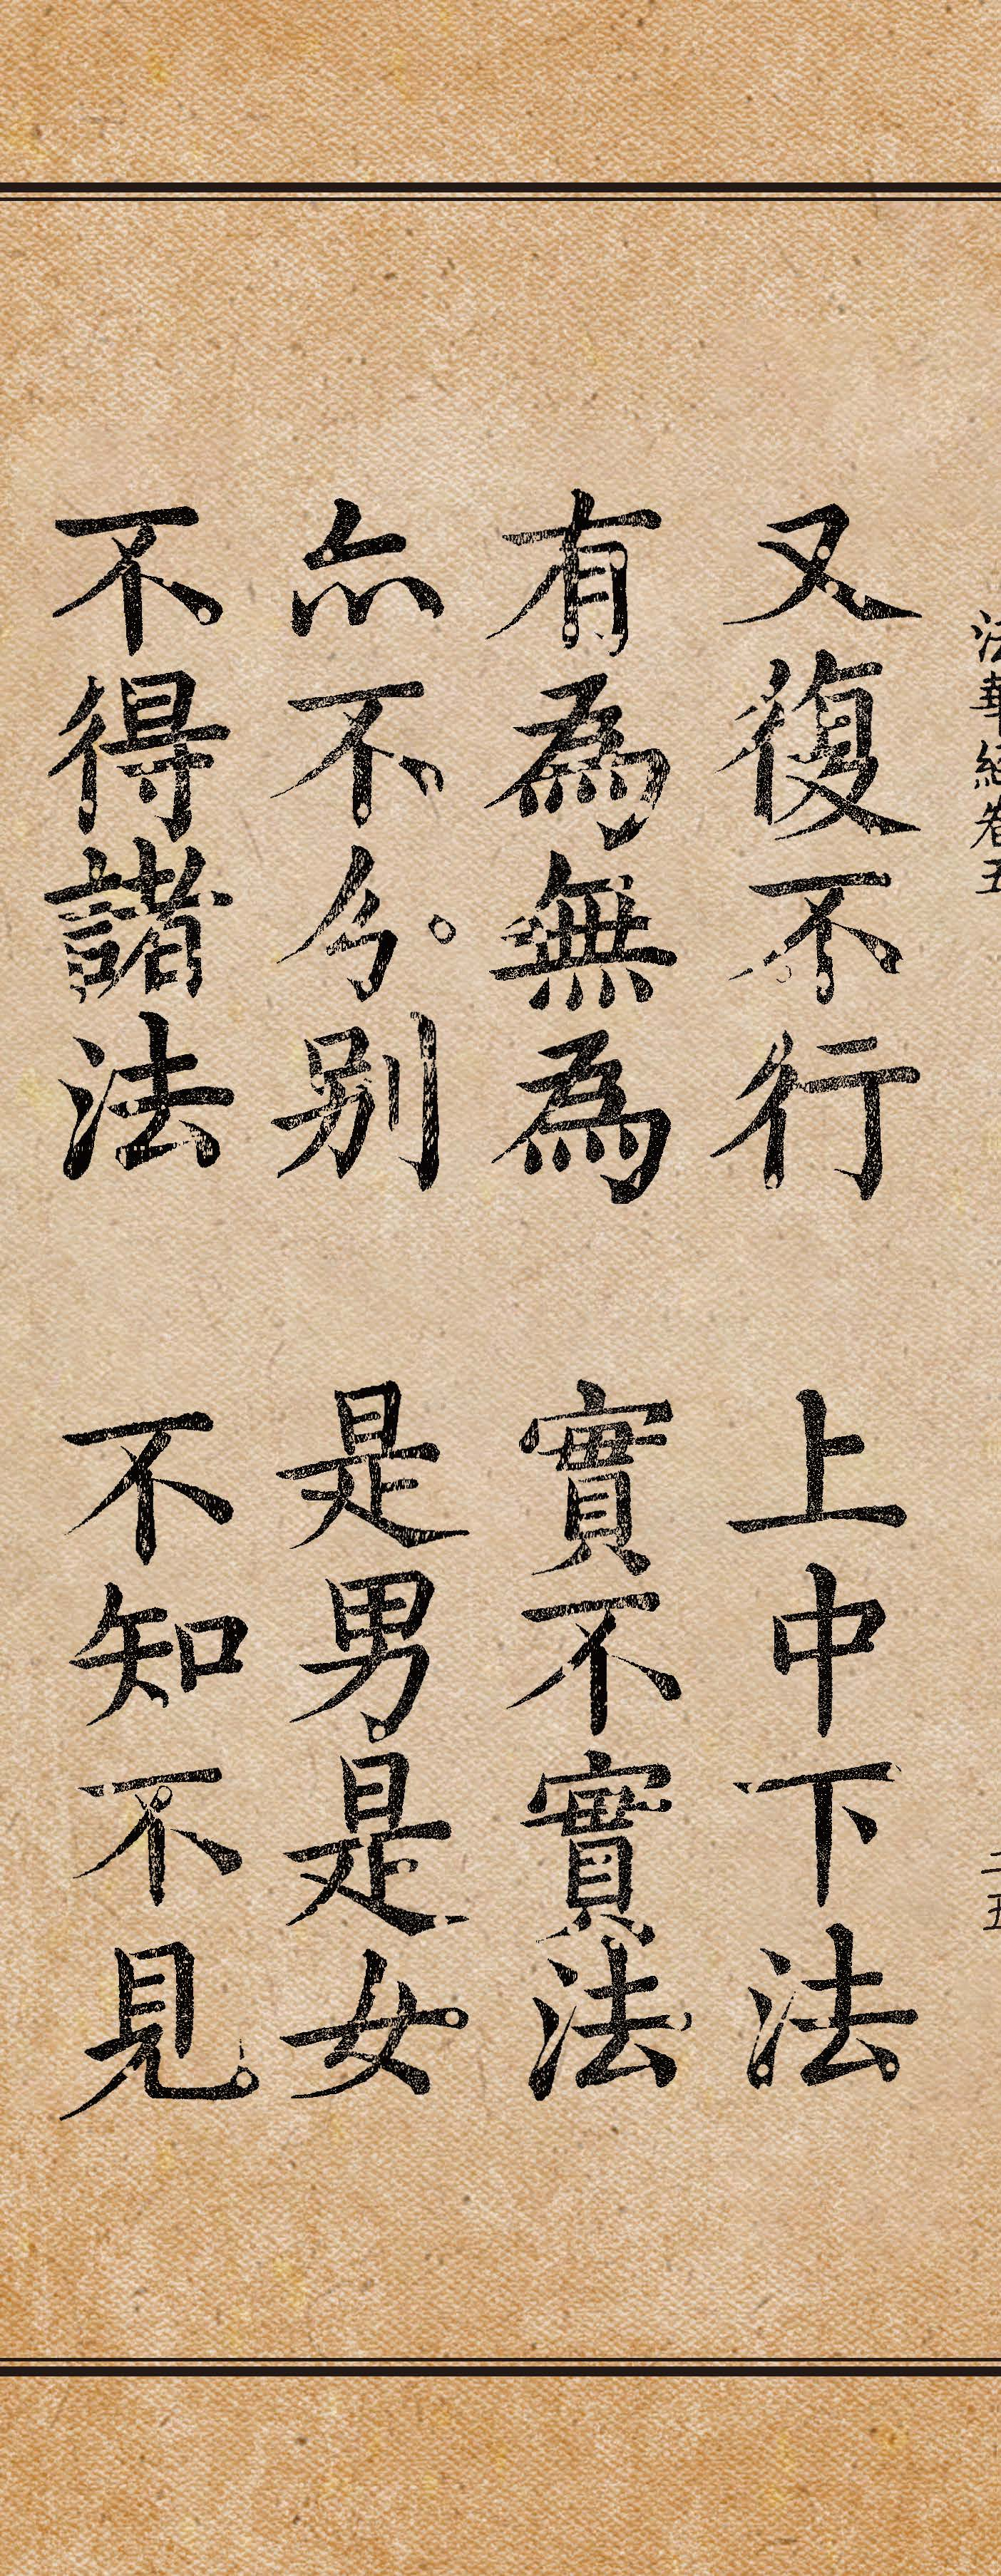 法華經卷五
二五
又復不行 上中下法
有為無為 實不實法
亦不分別 是男是女
不得諸法 不知不見